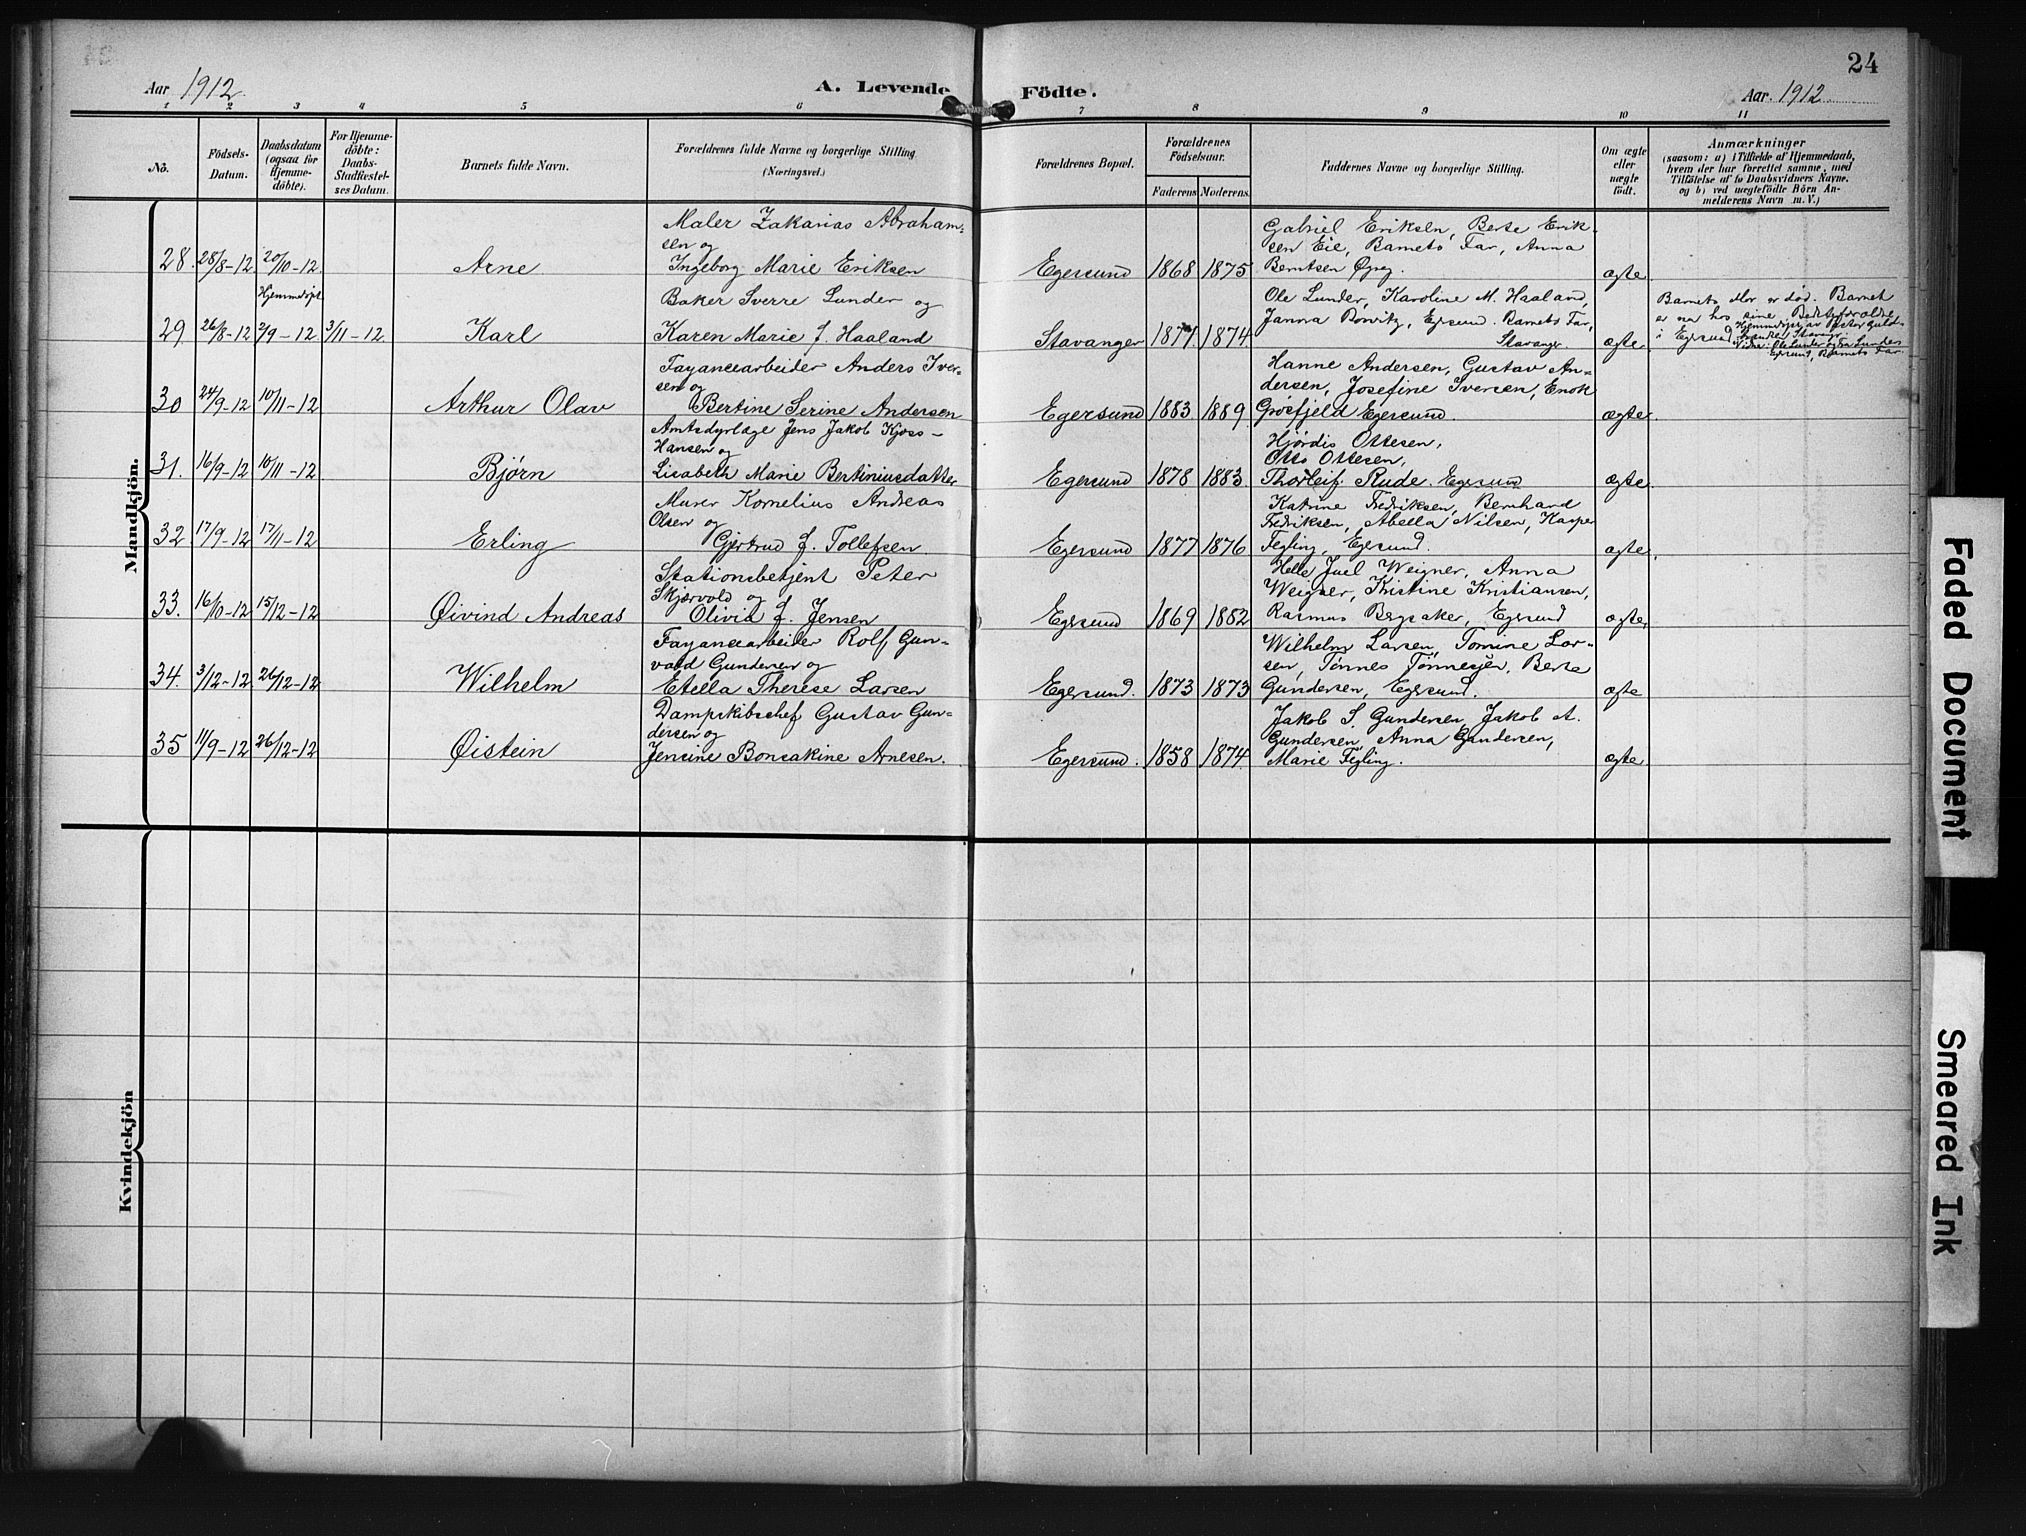 24
Aar 1912. A. Levende Födte. Aar. 1912
1 2 3 4 5 6 7 8 9 10 11
No. Födsels-Datum. Daabsdatum (ogsaa for Hjemmedöbte). For Hjemmedöbte: Daabs-Stadfæstelses Datum. Barnets fulde Navn. Forældrenes fulde Navne og borgerlige Stilling (Næringsvei.) Forældrenes Bopæl. Forældrenes Födselsaar. Faderens. Moderens. Faddernes Navne og borgerlige Stilling. Om ægte eller uægte födt. Anmærkninger (saasom: a) i Tilfælde af Hjemmedaab, hvem der har forrettet samme, med Tilföielse af to Daabsvidners Navne, og b) ved uægtefödte Börn Anmelderens Navn m. V.)
Mandkjön.
Maler Zakarias Abraham- Gabriel Eriksen, Berte Erik-
sen og sen Eie, Barnets Far, Anna
28. 28/8-12 20/10-12. Arne Ingeborg Marie Eriksen Egersund 1868 1875 Berntsen Øgrey. ægte.
Hjemmedøpt Baker Sverre Lunder og Ole Lunder, Karoline M. Haaland, Barnets Mor er død. Barnet
er nu hos sine Bedsteforældre
29. 26/8-12 2/9-12 3/11-12 Karl Karen Marie f. Haaland Stavanger 1877. 1874. Janna, Egersund. Barnets Far, Stavanger. ægte. i Egersund. Hjemmedøpt av Pastor
Stavanger.
Vidner: Ole Lunder og Fru Lunder
Egersund, Barnets Far.
Fayancearbeider Anders Iver- Hanne Andersen, Gustav An-
sen og dersen, Josefine Iversen, Enok
30 24/9-12 10/11-12 Arthur Olav Bertine Serine Andersen Egersund 1883 1889 Grøsfjeld Egersund. ægte.
Amtsdyrlæge Jens Jakob Kjoss- Hjørdis Ottesen,
Hansen og Otto Ottesen,
31. 16/9-12 10/11-12 Bjørn Lisabeth Marie Bertiniusdatter Egersund 1878 1883. Thorleif Rude. Egersund ægte.
Murer Kornelius Andreas Katrine Fredriksen, Bernhard
Olsen og Fredriksen, Abella Nilsen, Kasper
32 17/9-12 17/11-12 Erling Gjertrud f. Tollefsen. Egersund 1877 1876 Fegling, Egersund. ægte.
Stationsbetjent Peter Helle Juel Weigner, Anna
Skjærvold og Weigner, Kristine Kristiansen,
33. 16/10-12 15/12-12 Øivind Andreas Olivia f. Jensen Egersund 1869 1882 Rasmus Bergsaker, Egersund ægte.
Fayancearbeider Rolf Gun- Wilhelm Larsen, Tomine Lar-
vald Gundersen og sen, Tønnes Tønnesen, Berte
34. 3/12-12 26/12-12 Wilhelm Etella Therese Larsen Egersund. 1873 1873 Gundersen, Egersund. ægte
Dampskibschef Gustav Gun- Jakob S. Gundersen, Jakob A.
dersen og Gundersen, Anna Gundersen,
35 11/9-12 26/12-12 Øistein Jensine Bonsakine Arnesen. Egersund. 1858 1874. Marie Fegling. ægte
Kvindekjön
Faded Document
Smeared Ink